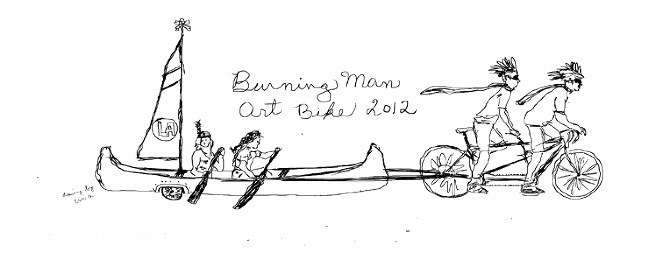 Burning Man
Art Bike 2012
LA
drawing by